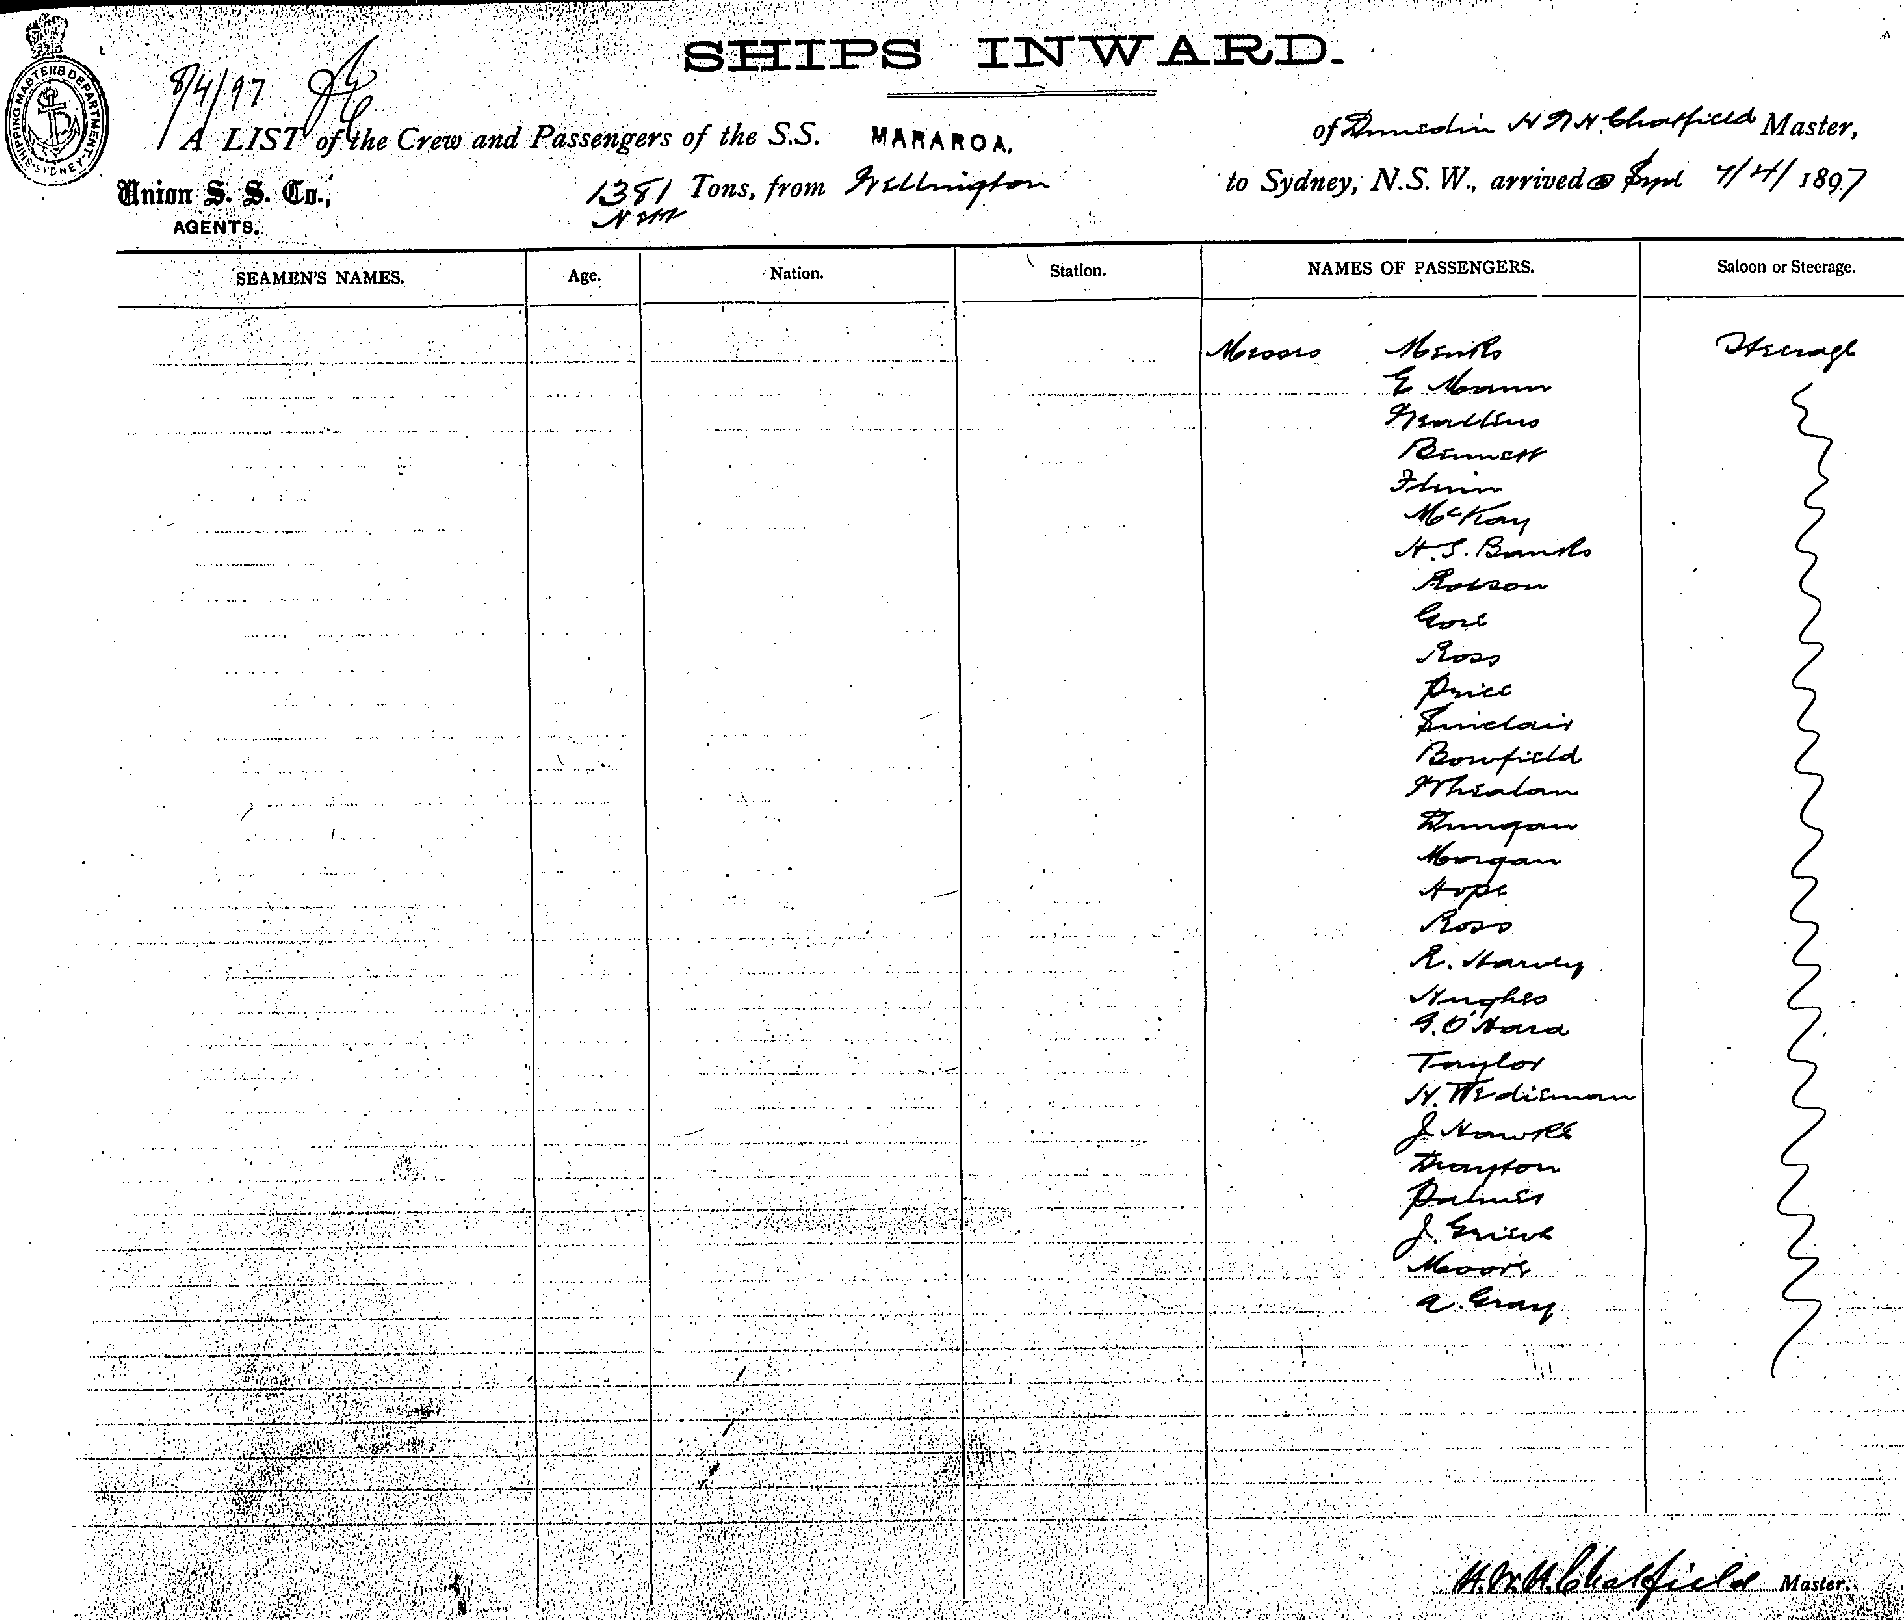 SHIPS INWARD.
SHIPPING MASTERS DEPARTMENT SYDNEY
8/4/97
A LIST of the Crew and Passengers of the S.S. MARAROA, of Dunedin H W H. Chatfield Master,
Union S. S. Co., 1381 Tons, from Wellington to Sydney, N.S.W., arrived 7/4/1897
AGENTS.
SEAMEN'S NAMES. Age. Nation. Station. NAMES OF PASSENGERS. Saloon or Steerage.
Messrs Menks Steerage
E Mann
Bennett
Flinn
McKay
H. S. Banks
Robson
Gore
Ross
Price
Sinclair
Bowfield
Whealan
Dungan
Morgan
Hope
Ross
R. Harvey
Hughes
G. O'Hara
Taylor
H. Wedieman
J. Hawke
Drayton
Palmer
J. Grieve
Moore
A. Gray
H. W. H. Chatfield Master.